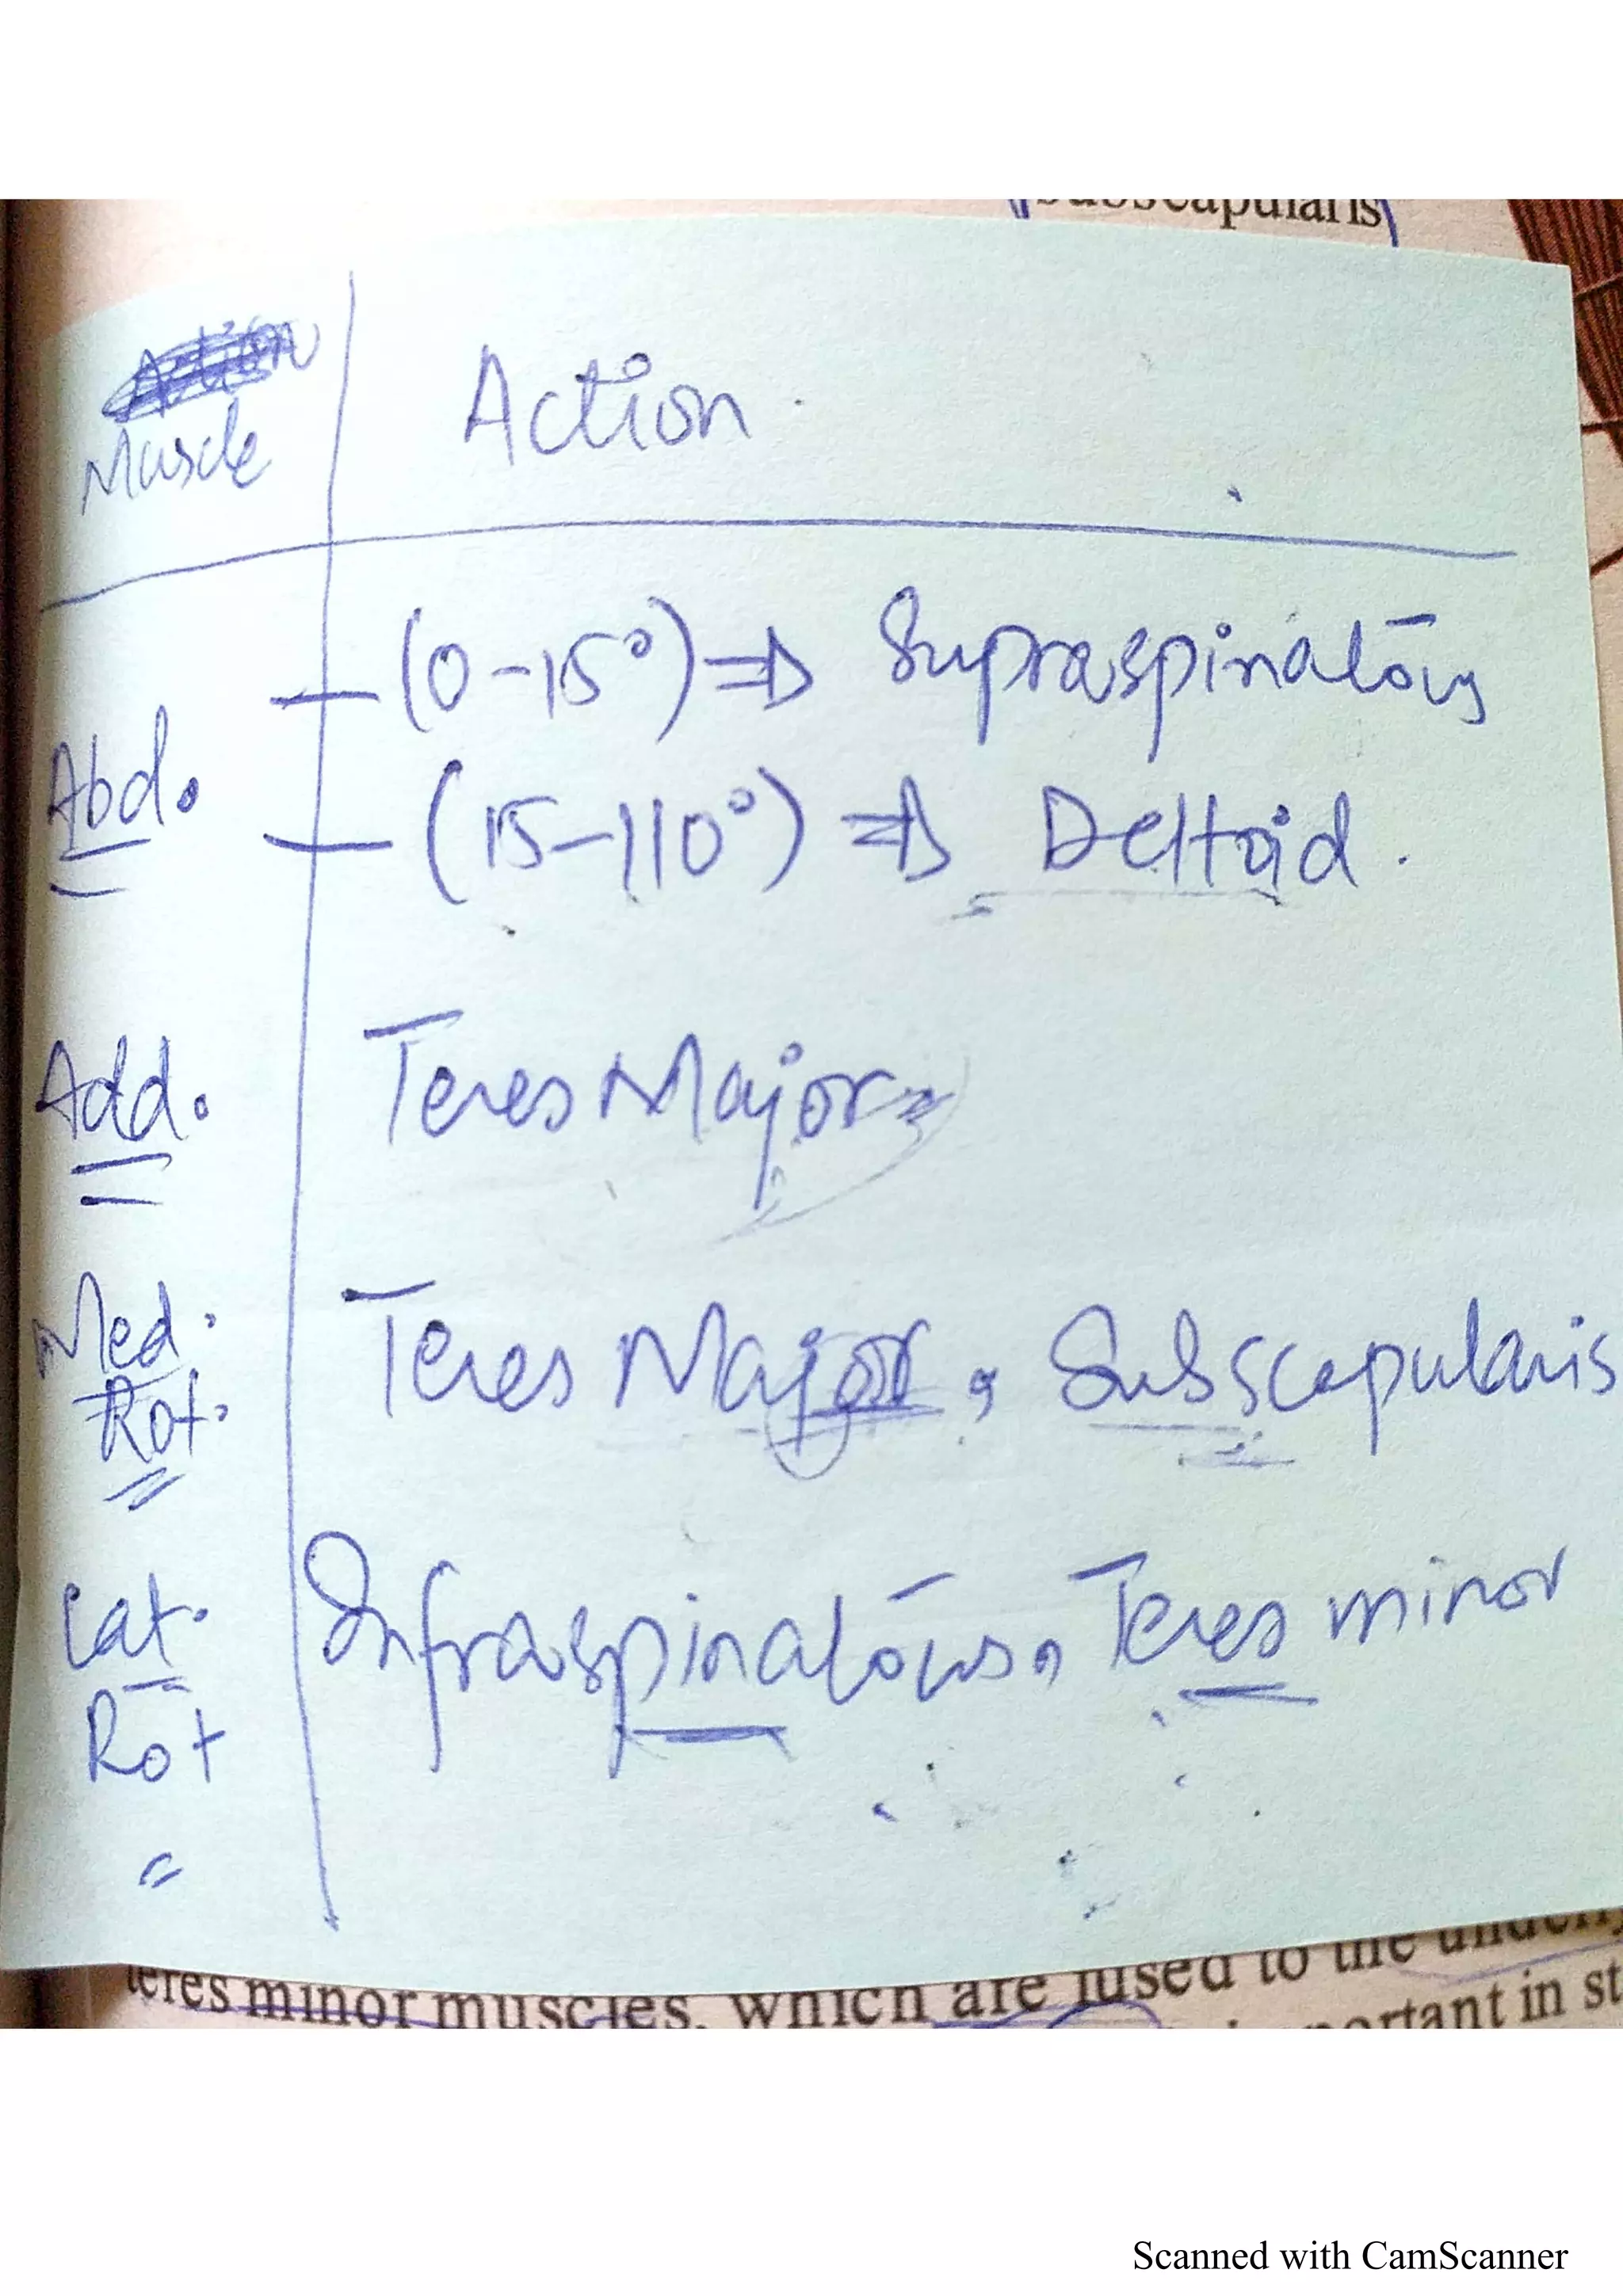 subscapularis
Action
Muscle | Action.
Abd. — (0-15°) ⇒ Supraspinatous
— (15-110°) ⇒ Deltoid.
Add. Teres Major
Med. Rot. Teres Major, Subscapularis
Lat. Rot Infraspinatous, Teres minor
teres minor muscles, which are fused to the
important in
Scanned with CamScanner